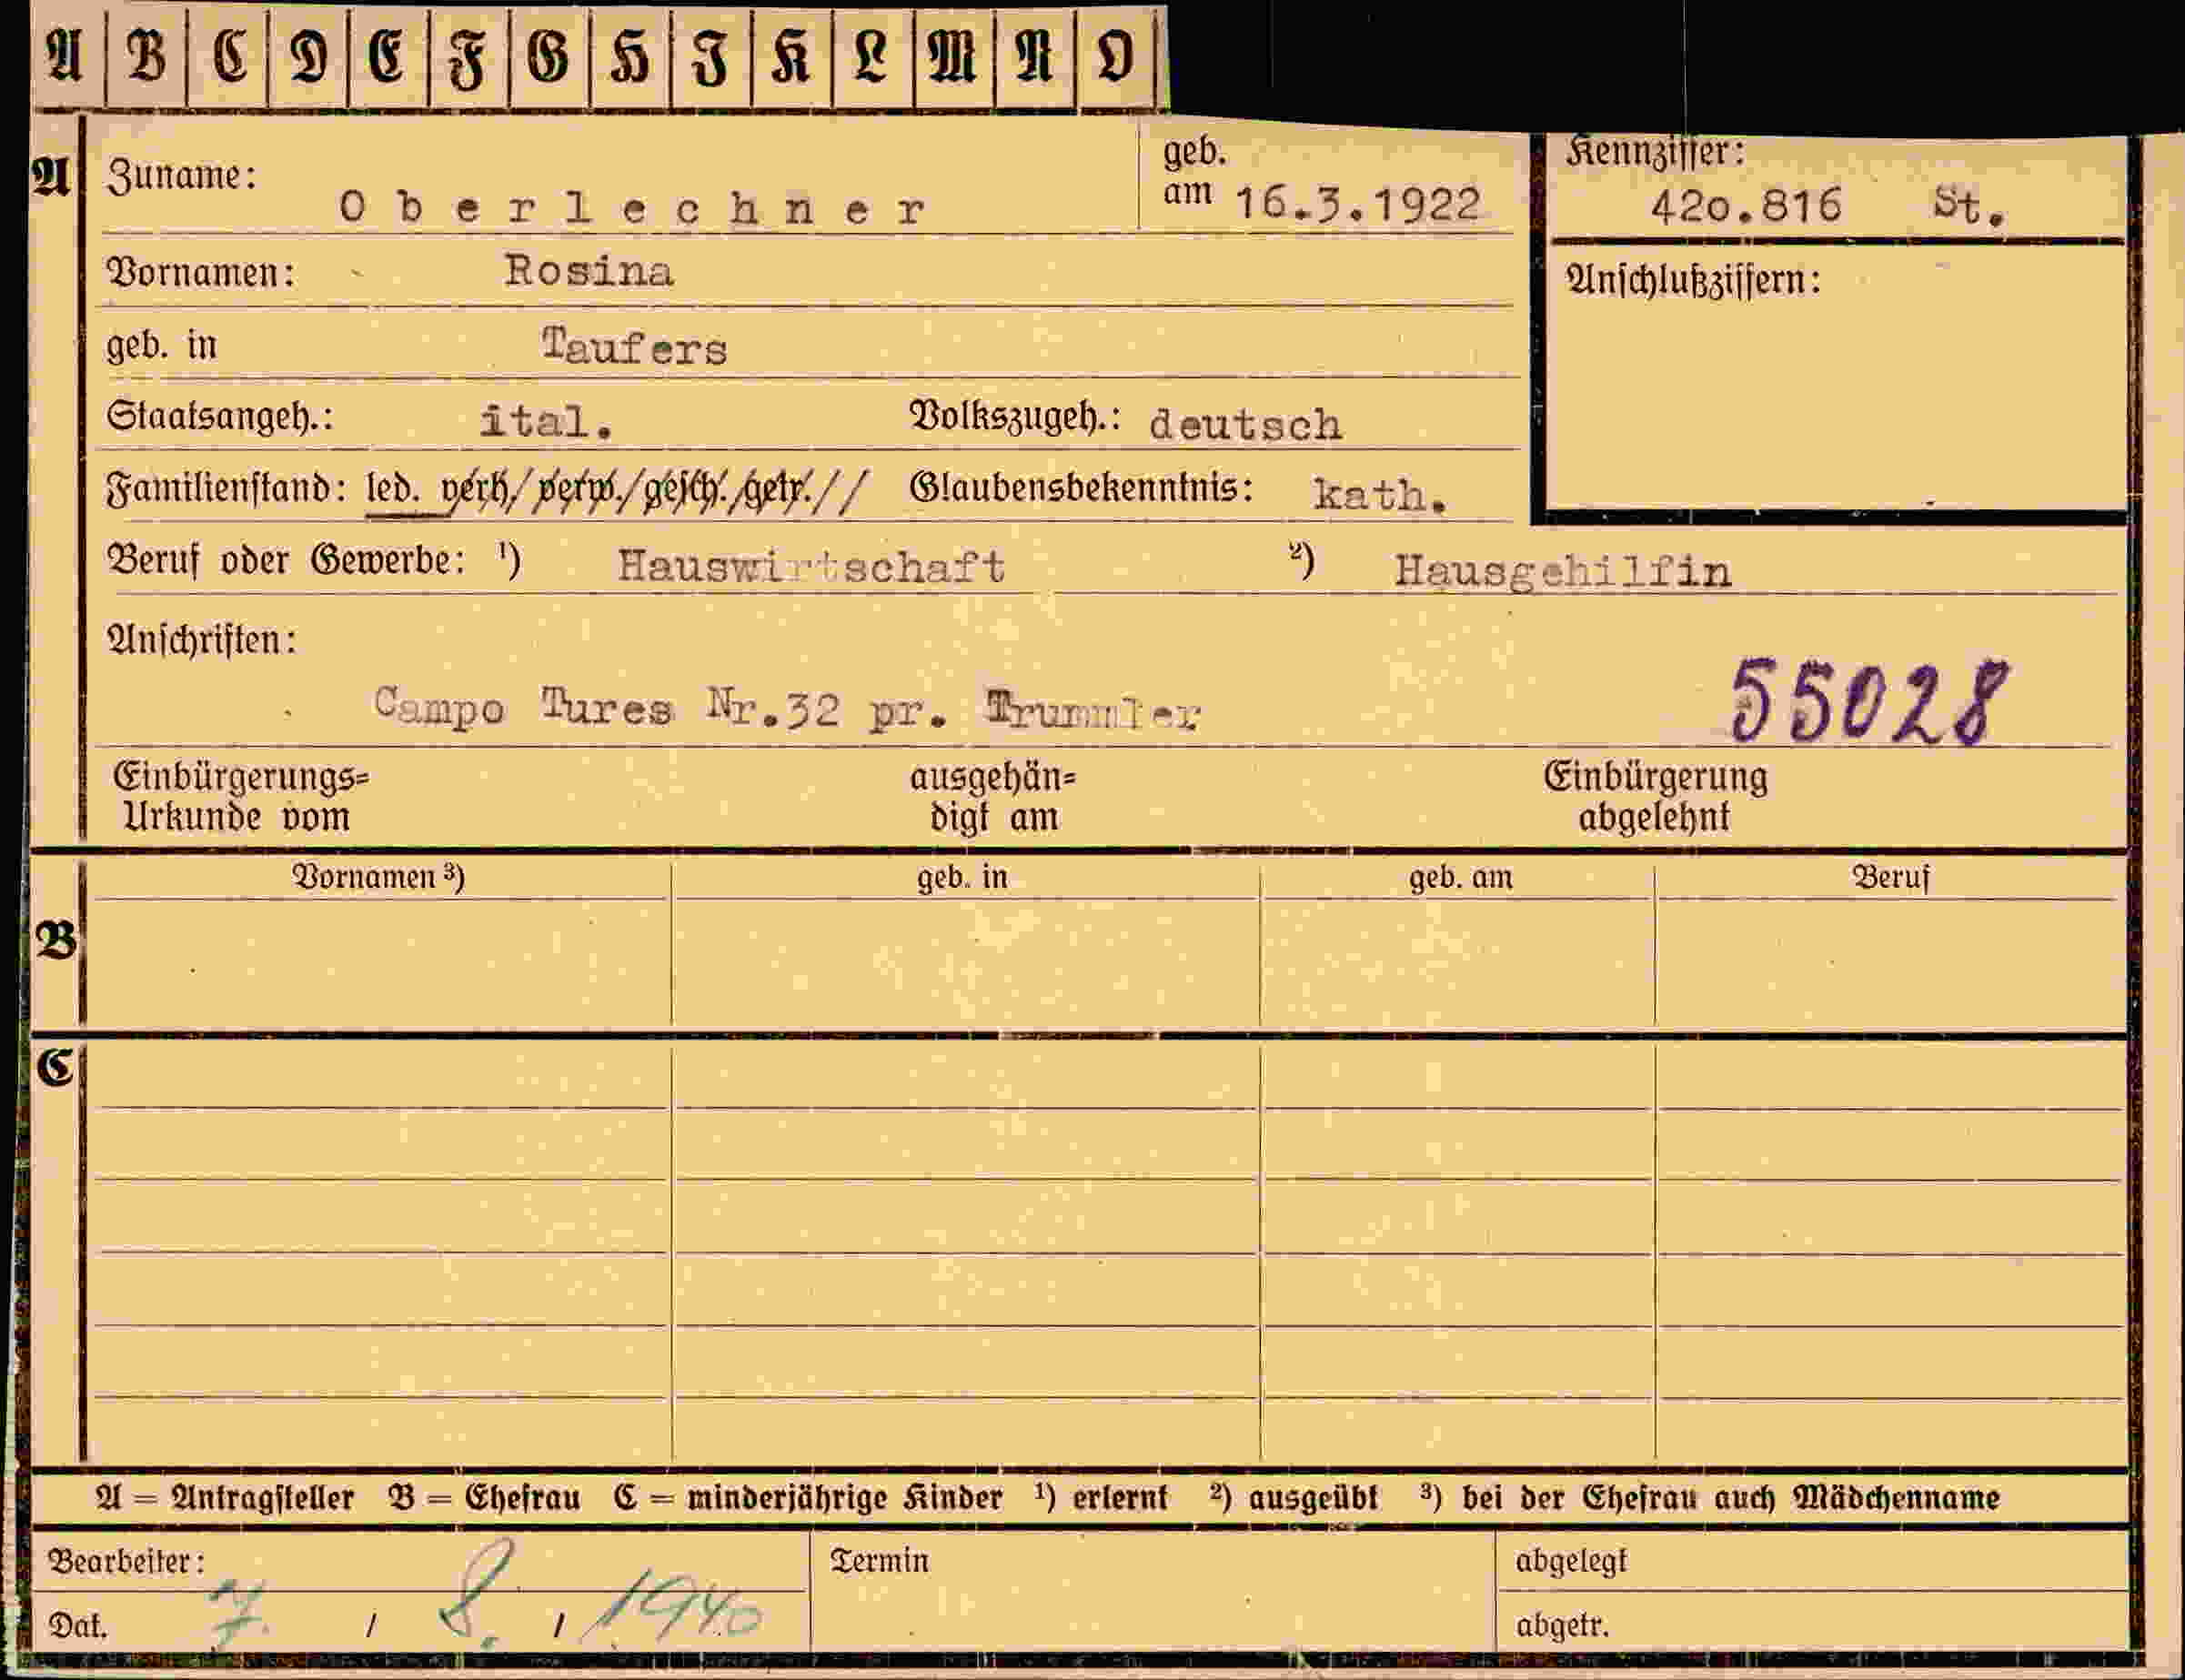 A B C D E F G H J K L M N O
A Zuname: Oberlechner geb. am 16.3.1922 Kennziffer: 420.816 St.
Vornamen: Rosina Anschlußziffern:
geb. in Taufers
Staatsangeh.: ital. Volkszugeh.: deutsch
Familienstand: led. verh/verw./gesch./getr.// Glaubensbekenntnis: kath.
Beruf oder Gewerbe: ¹) Hauswirtschaft ²) Hausgehilfin
Anschriften:
Campo Tures Nr.32 pr. Trummler 55028
Einbürgerungs= ausgehän= Einbürgerung
Urkunde vom digt am abgelehnt
Vornamen ³) geb. in geb. am Beruf
B
C
A = Antragsteller B = Ehefrau C = minderjährige Kinder ¹) erlernt ²) ausgeübt ³) bei der Ehefrau auch Mädchenname
Bearbeiter: Termin abgelegt
Dat. 7. / 8. / 1940 abgetr.